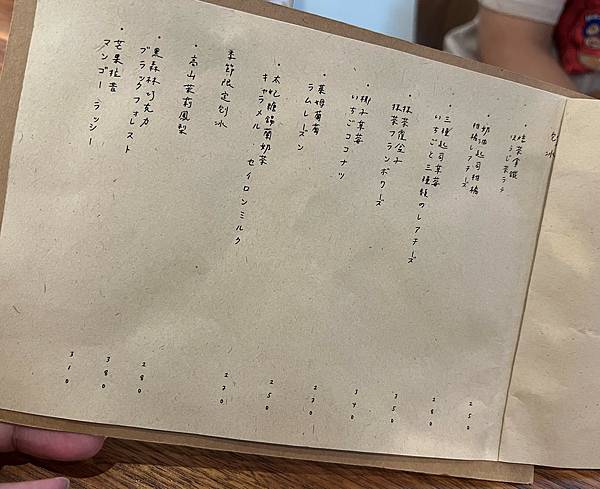 刨冰
・焙茶拿鐵
ほうじ茶ラテ
250
・奶油起司柑橘
柑橘レアチーズ
280
・三種起司草莓
いちごと三種類のレアチーズ
350
・抹茶覆盆子
抹茶フランボワーズ
340
・椰子草莓
いちごココナツ
230
・萊姆葡萄
ラムレーズン
250
・太妃糖錫蘭奶茶
キャラメル セイロンミルク
270
季節限定刨冰
・高山茉莉鳳梨
280
・黑森林巧克力
ブラックフォレスト
380
・芒果拉昔
マンゴー ラッシー
310